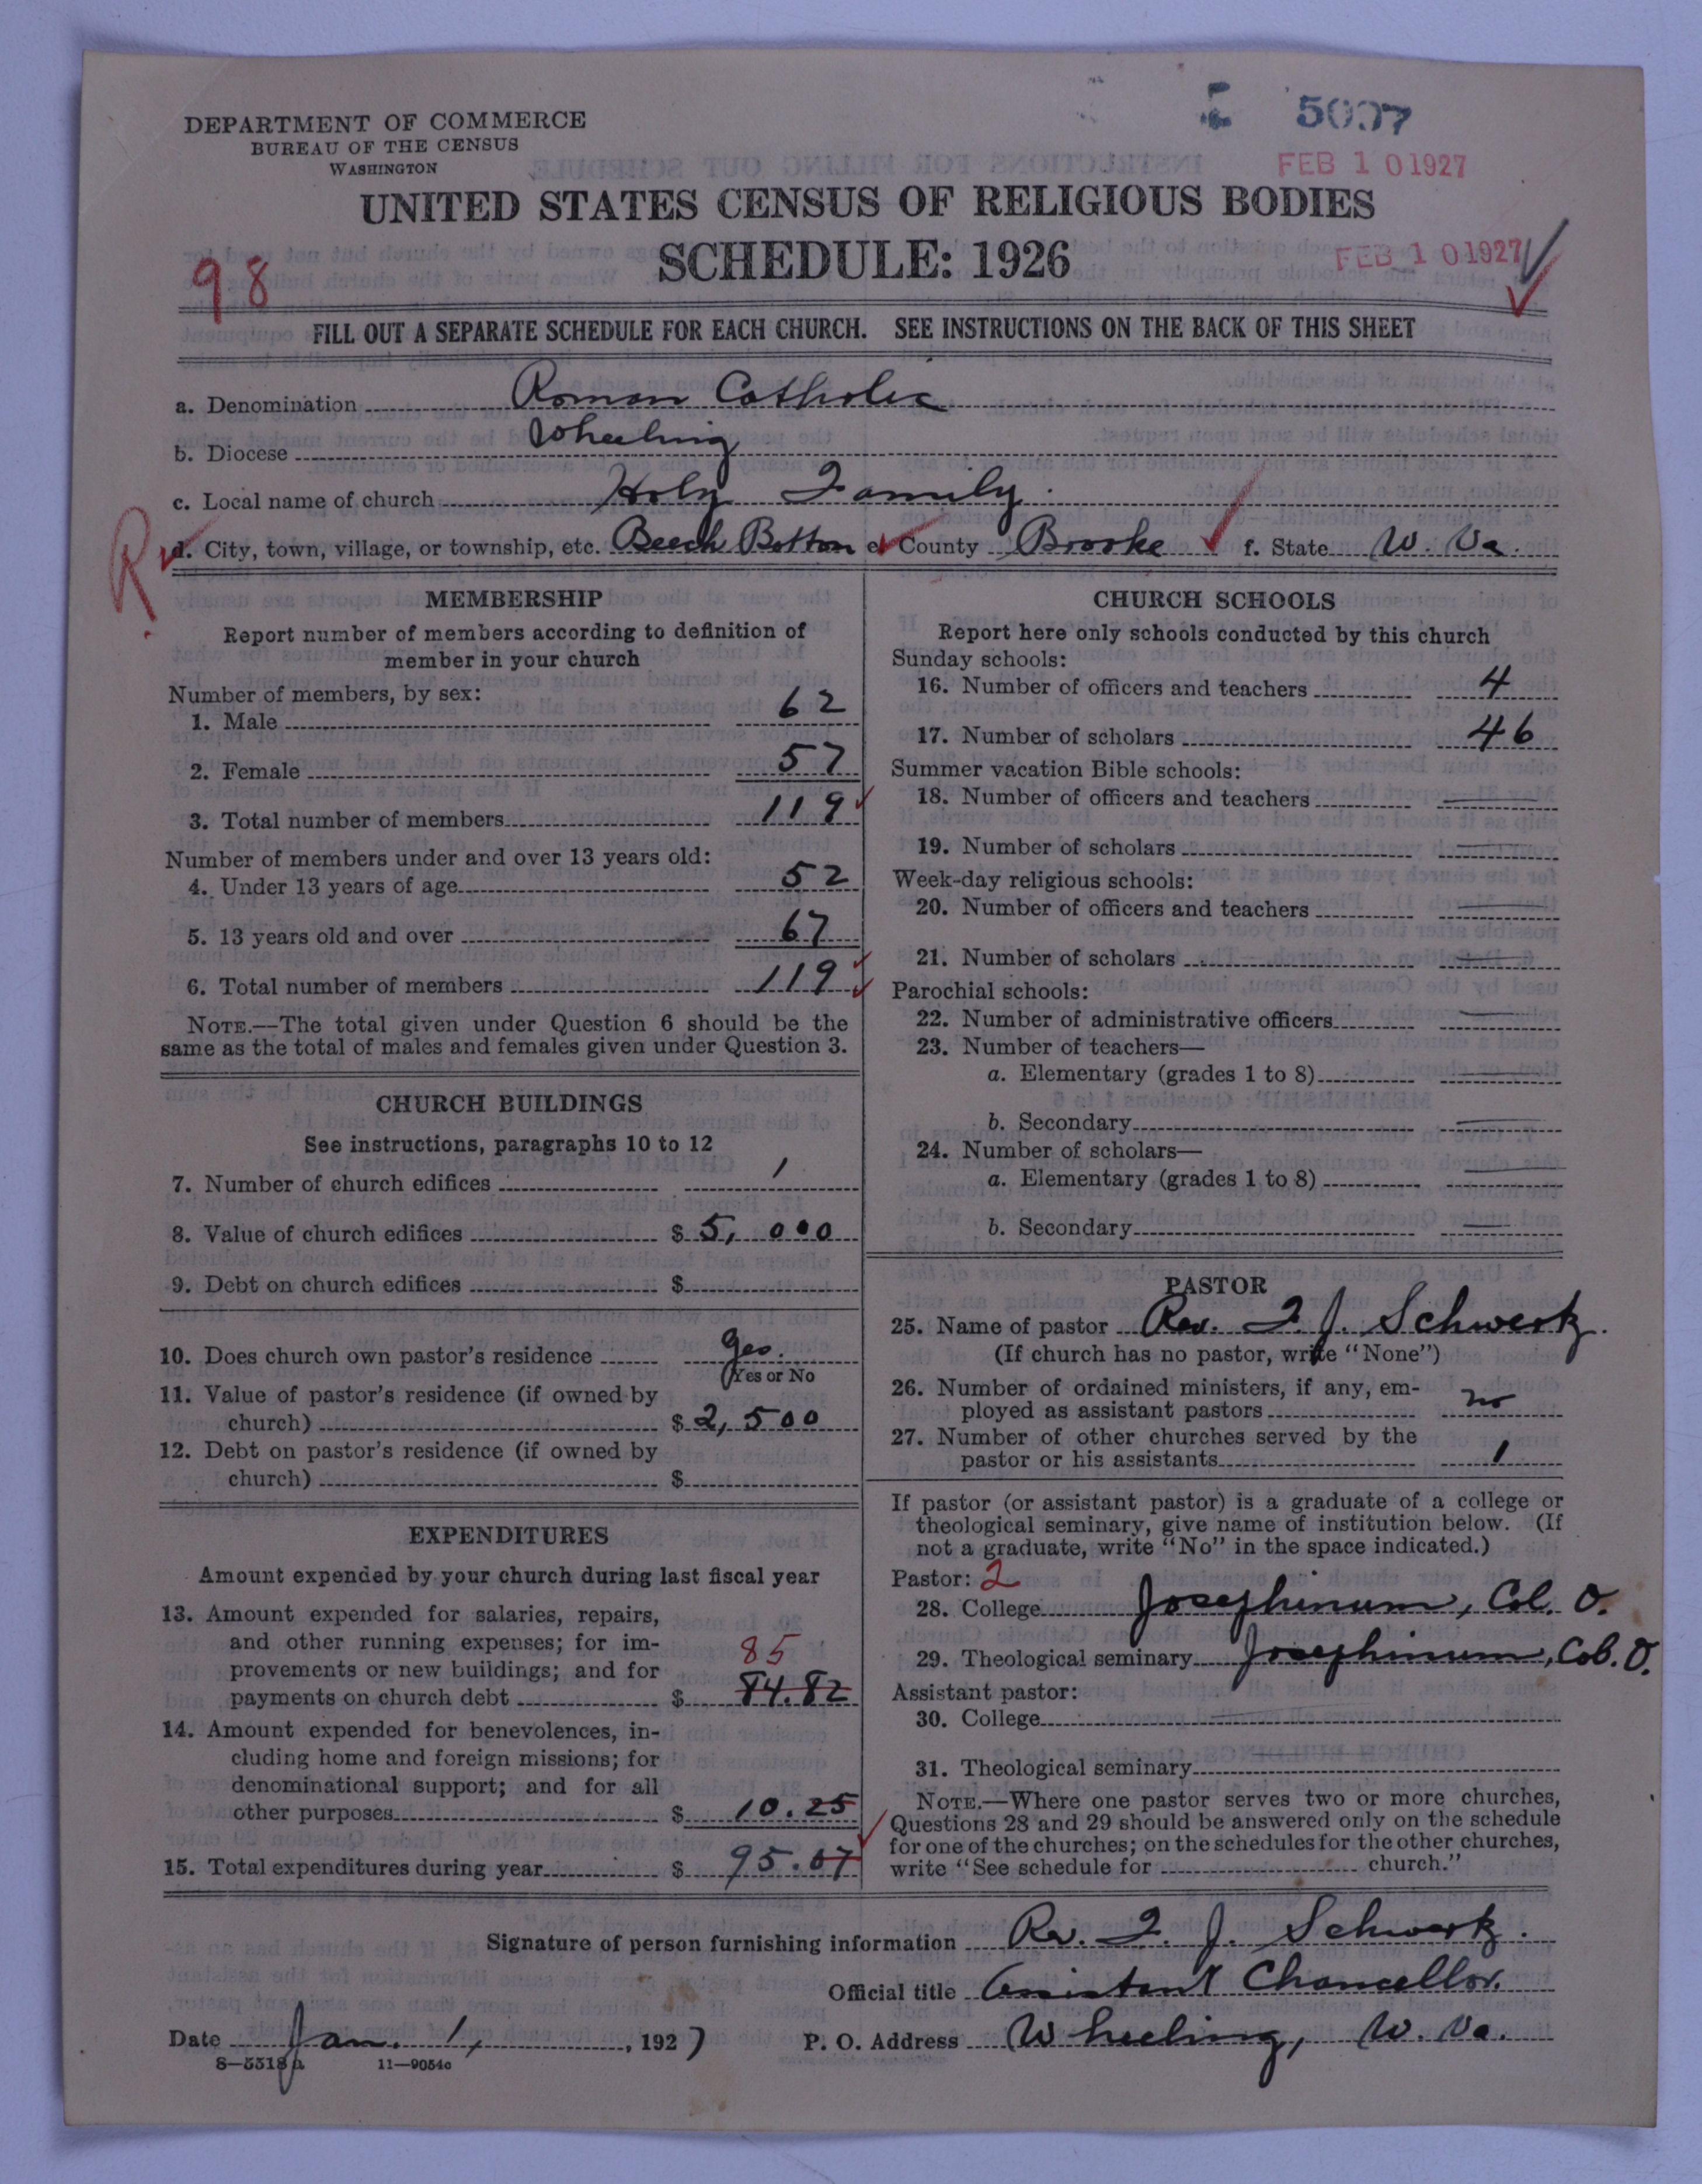 5007
DEPARTMENT OF COMMERCE
BUREAU OF THE CENSUS
WASHINGTON
FEB 10 1927
UNITED STATES CENSUS OF RELIGIOUS BODIES
SCHEDULE: 1926
FEB 10 1927
98
FILL OUT A SEPARATE SCHEDULE FOR EACH CHURCH. SEE INSTRUCTIONS ON THE BACK OF THIS SHEET
a. Denomination Roman Catholic
b. Diocese Wheeling
c. Local name of church Holy Family
R
d. City, town, village, or township, etc. Beech Bottom e. County Brooke f. State W. Va.
MEMBERSHIP
Report number of members according to definition of
member in your church
Number of members, by sex:
1. Male 62
2. Female 57
3. Total number of members 119
Number of members under and over 13 years old:
4. Under 13 years of age 52
5. 13 years old and over 67
6. Total number of members 119
NOTE.—The total given under Question 6 should be the
same as the total of males and females given under Question 3.
CHURCH BUILDINGS
See instructions, paragraphs 10 to 12
7. Number of church edifices 1
8. Value of church edifices $ 5,000
9. Debt on church edifices $
10. Does church own pastor's residence yes.
(Yes or No
11. Value of pastor's residence (if owned by
church) $ 2,500
12. Debt on pastor's residence (if owned by
church) $
EXPENDITURES
Amount expended by your church during last fiscal year
13. Amount expended for salaries, repairs,
and other running expenses; for im-
provements or new buildings; and for 85
payments on church debt $ 84.82
14. Amount expended for benevolences, in-
cluding home and foreign missions; for
denominational support; and for all
other purposes $ 10.25
15. Total expenditures during year $ 95.07
CHURCH SCHOOLS
Report here only schools conducted by this church
Sunday schools:
16. Number of officers and teachers 4
17. Number of scholars 46
Summer vacation Bible schools:
18. Number of officers and teachers
19. Number of scholars
Week-day religious schools:
20. Number of officers and teachers
21. Number of scholars
Parochial schools:
22. Number of administrative officers
23. Number of teachers—
a. Elementary (grades 1 to 8)
b. Secondary
24. Number of scholars—
a. Elementary (grades 1 to 8)
b. Secondary
PASTOR
25. Name of pastor Rev. F. J. Schwerk.
(If church has no pastor, write "None")
26. Number of ordained ministers, if any, em-
ployed as assistant pastors no
27. Number of other churches served by the
pastor or his assistants 1
If pastor (or assistant pastor) is a graduate of a college or
theological seminary, give name of institution below. (If
not a graduate, write "No" in the space indicated.)
Pastor: 2
28. College Josephinum, Col. O.
29. Theological seminary Josephinum, Col. O.
Assistant pastor:
30. College
31. Theological seminary
NOTE.—Where one pastor serves two or more churches,
Questions 28 and 29 should be answered only on the schedule
for one of the churches; on the schedules for the other churches,
write "See schedule for church."
Signature of person furnishing information Rev. F. J. Schwerk.
Official title Assistant Chancellor.
Date Jan. 1, 1927 P. O. Address Wheeling, W. Va.
S—5518a 11—9054c